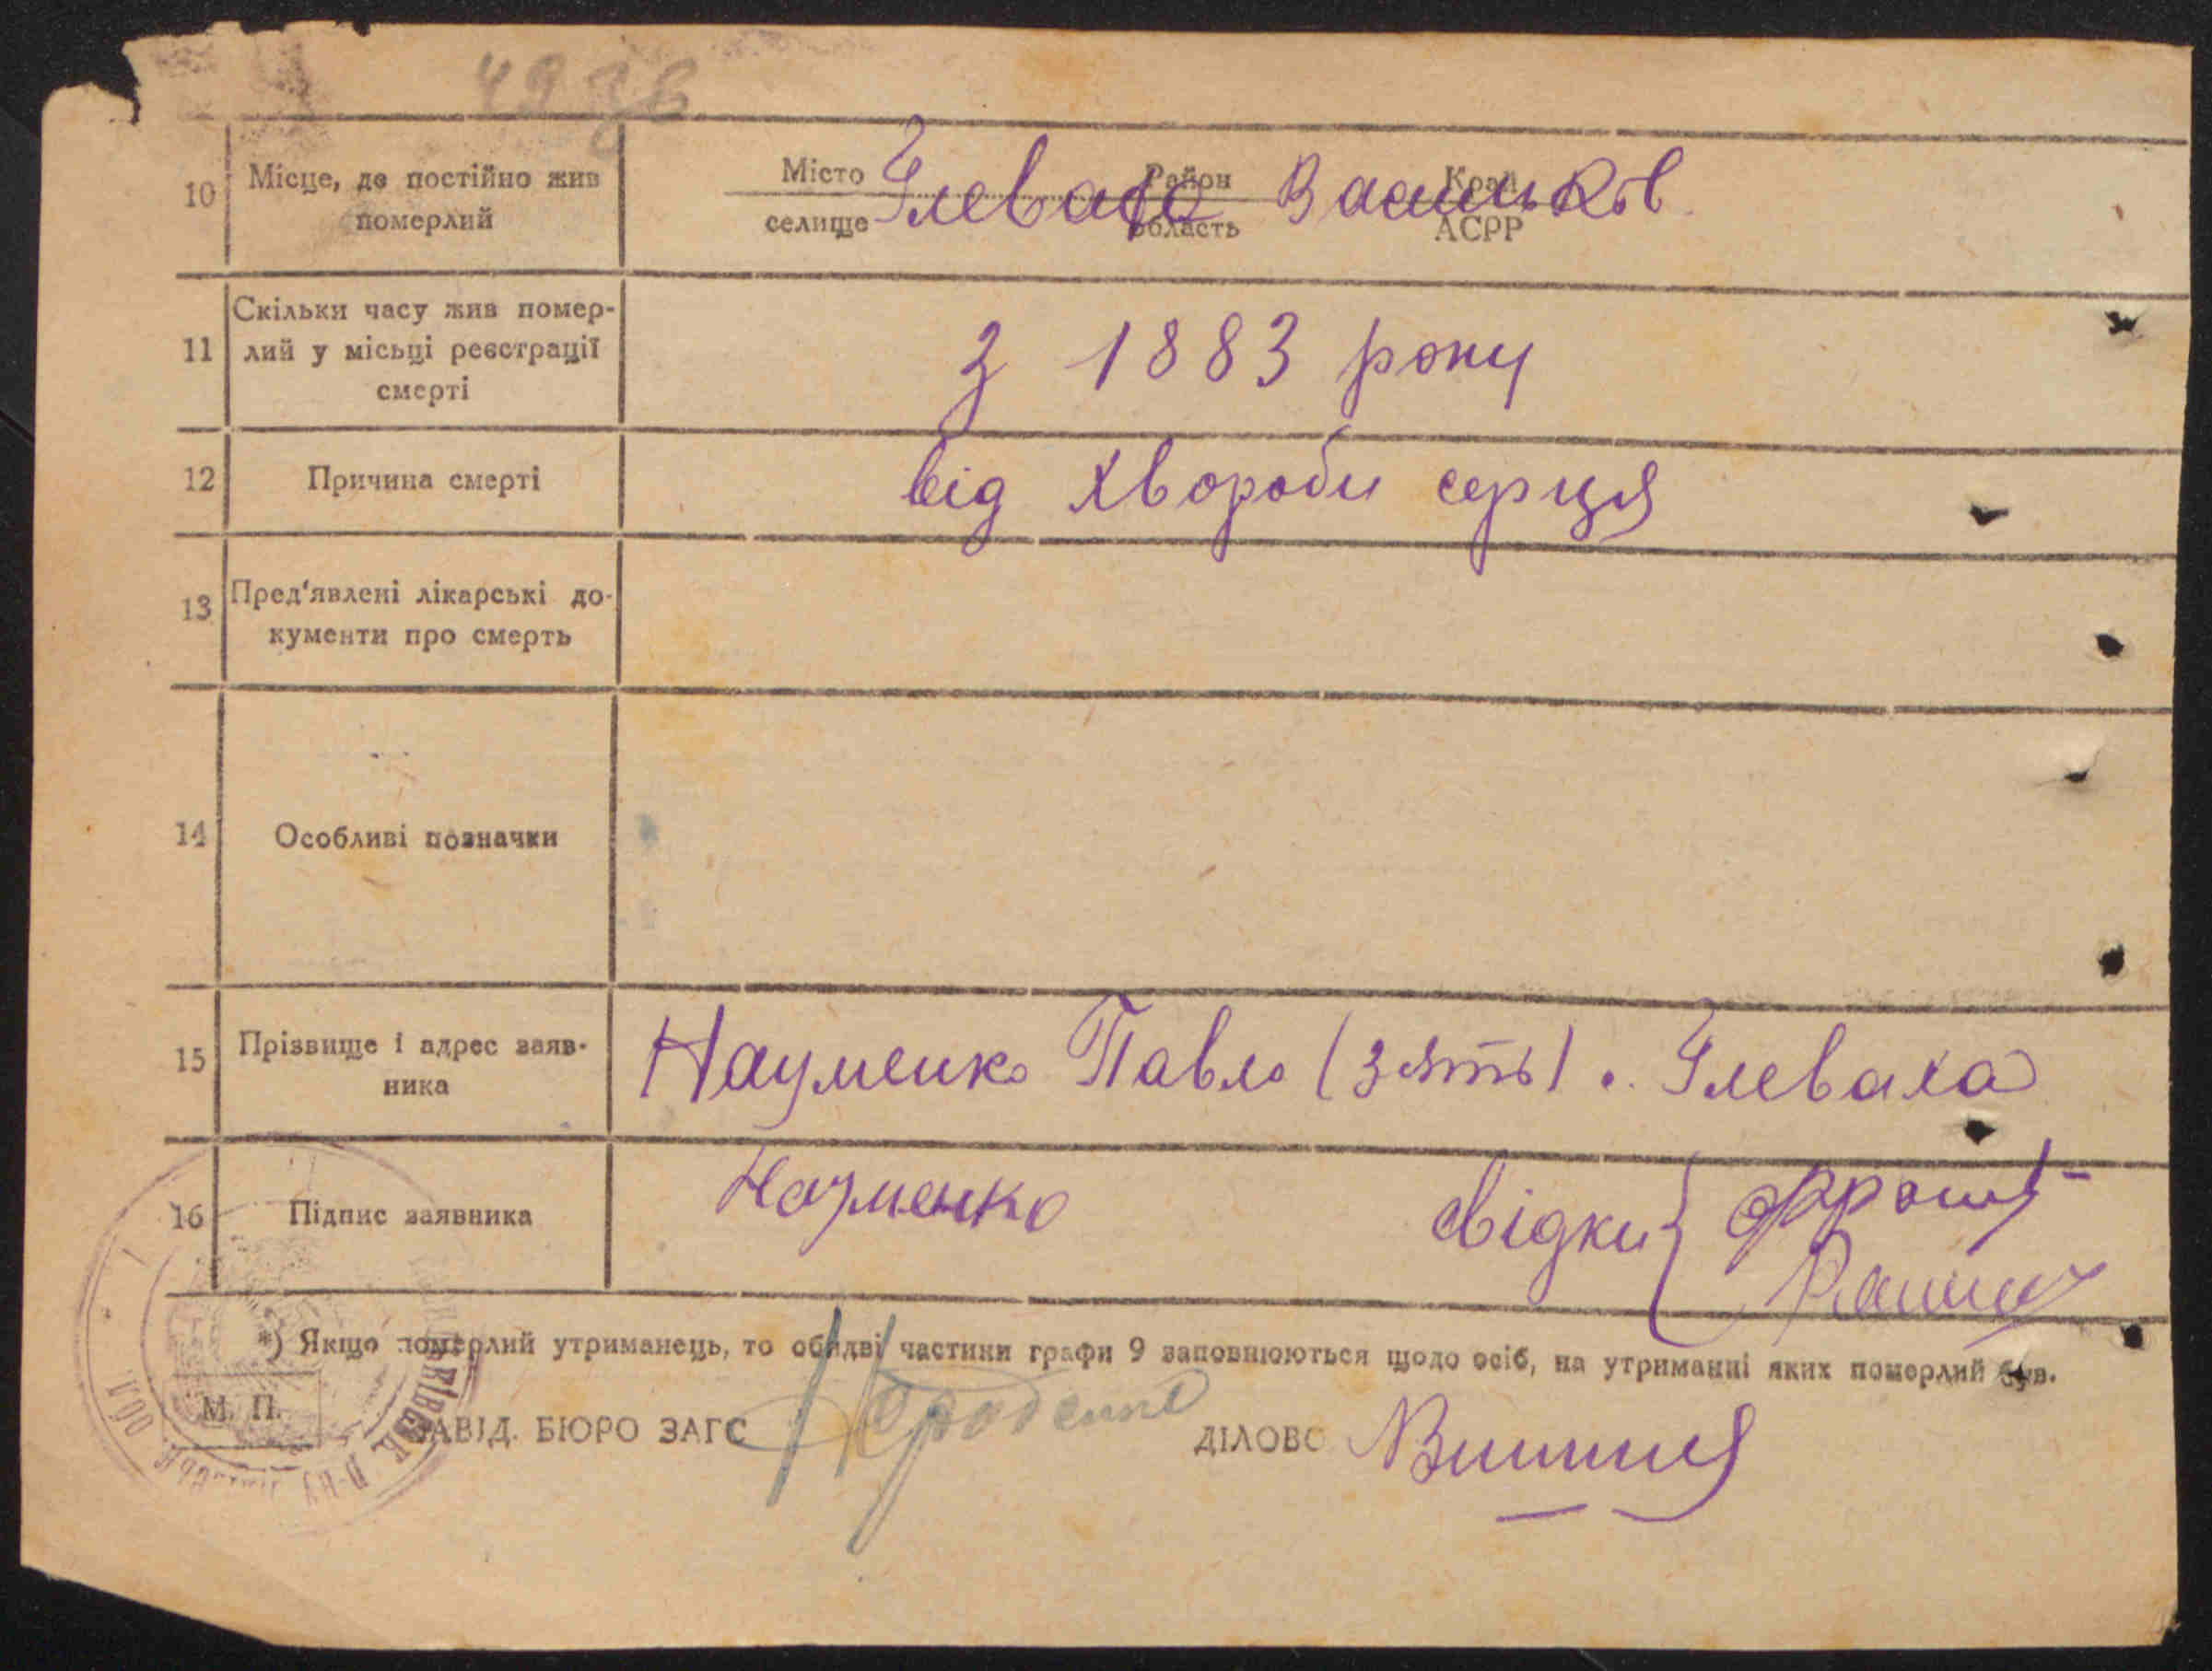 10 Місце, де постійно жив
померлий
Місто Глеваха Район Васильків Край
селище область АСРР
11 Скільки часу жив помер-
лий у місьці реєстрації
смерті
З 1883 року
12 Причина смерті від хвороби серця
13 Пред'явлені лікарські до-
кументи про смерть
14 Особливі позначки
15 Прізвище і адрес заяв-
ника
Науменко Павло (зять) с. Глеваха
16 Підпис заявника Науменко свідки
*) Якщо померлий утриманець, то обидві частини графи 9 заповнюються щодо осіб, на утриманні яких померлий був.
М. П.
ЗАВІД. БЮРО ЗАГС ДІЛОВО